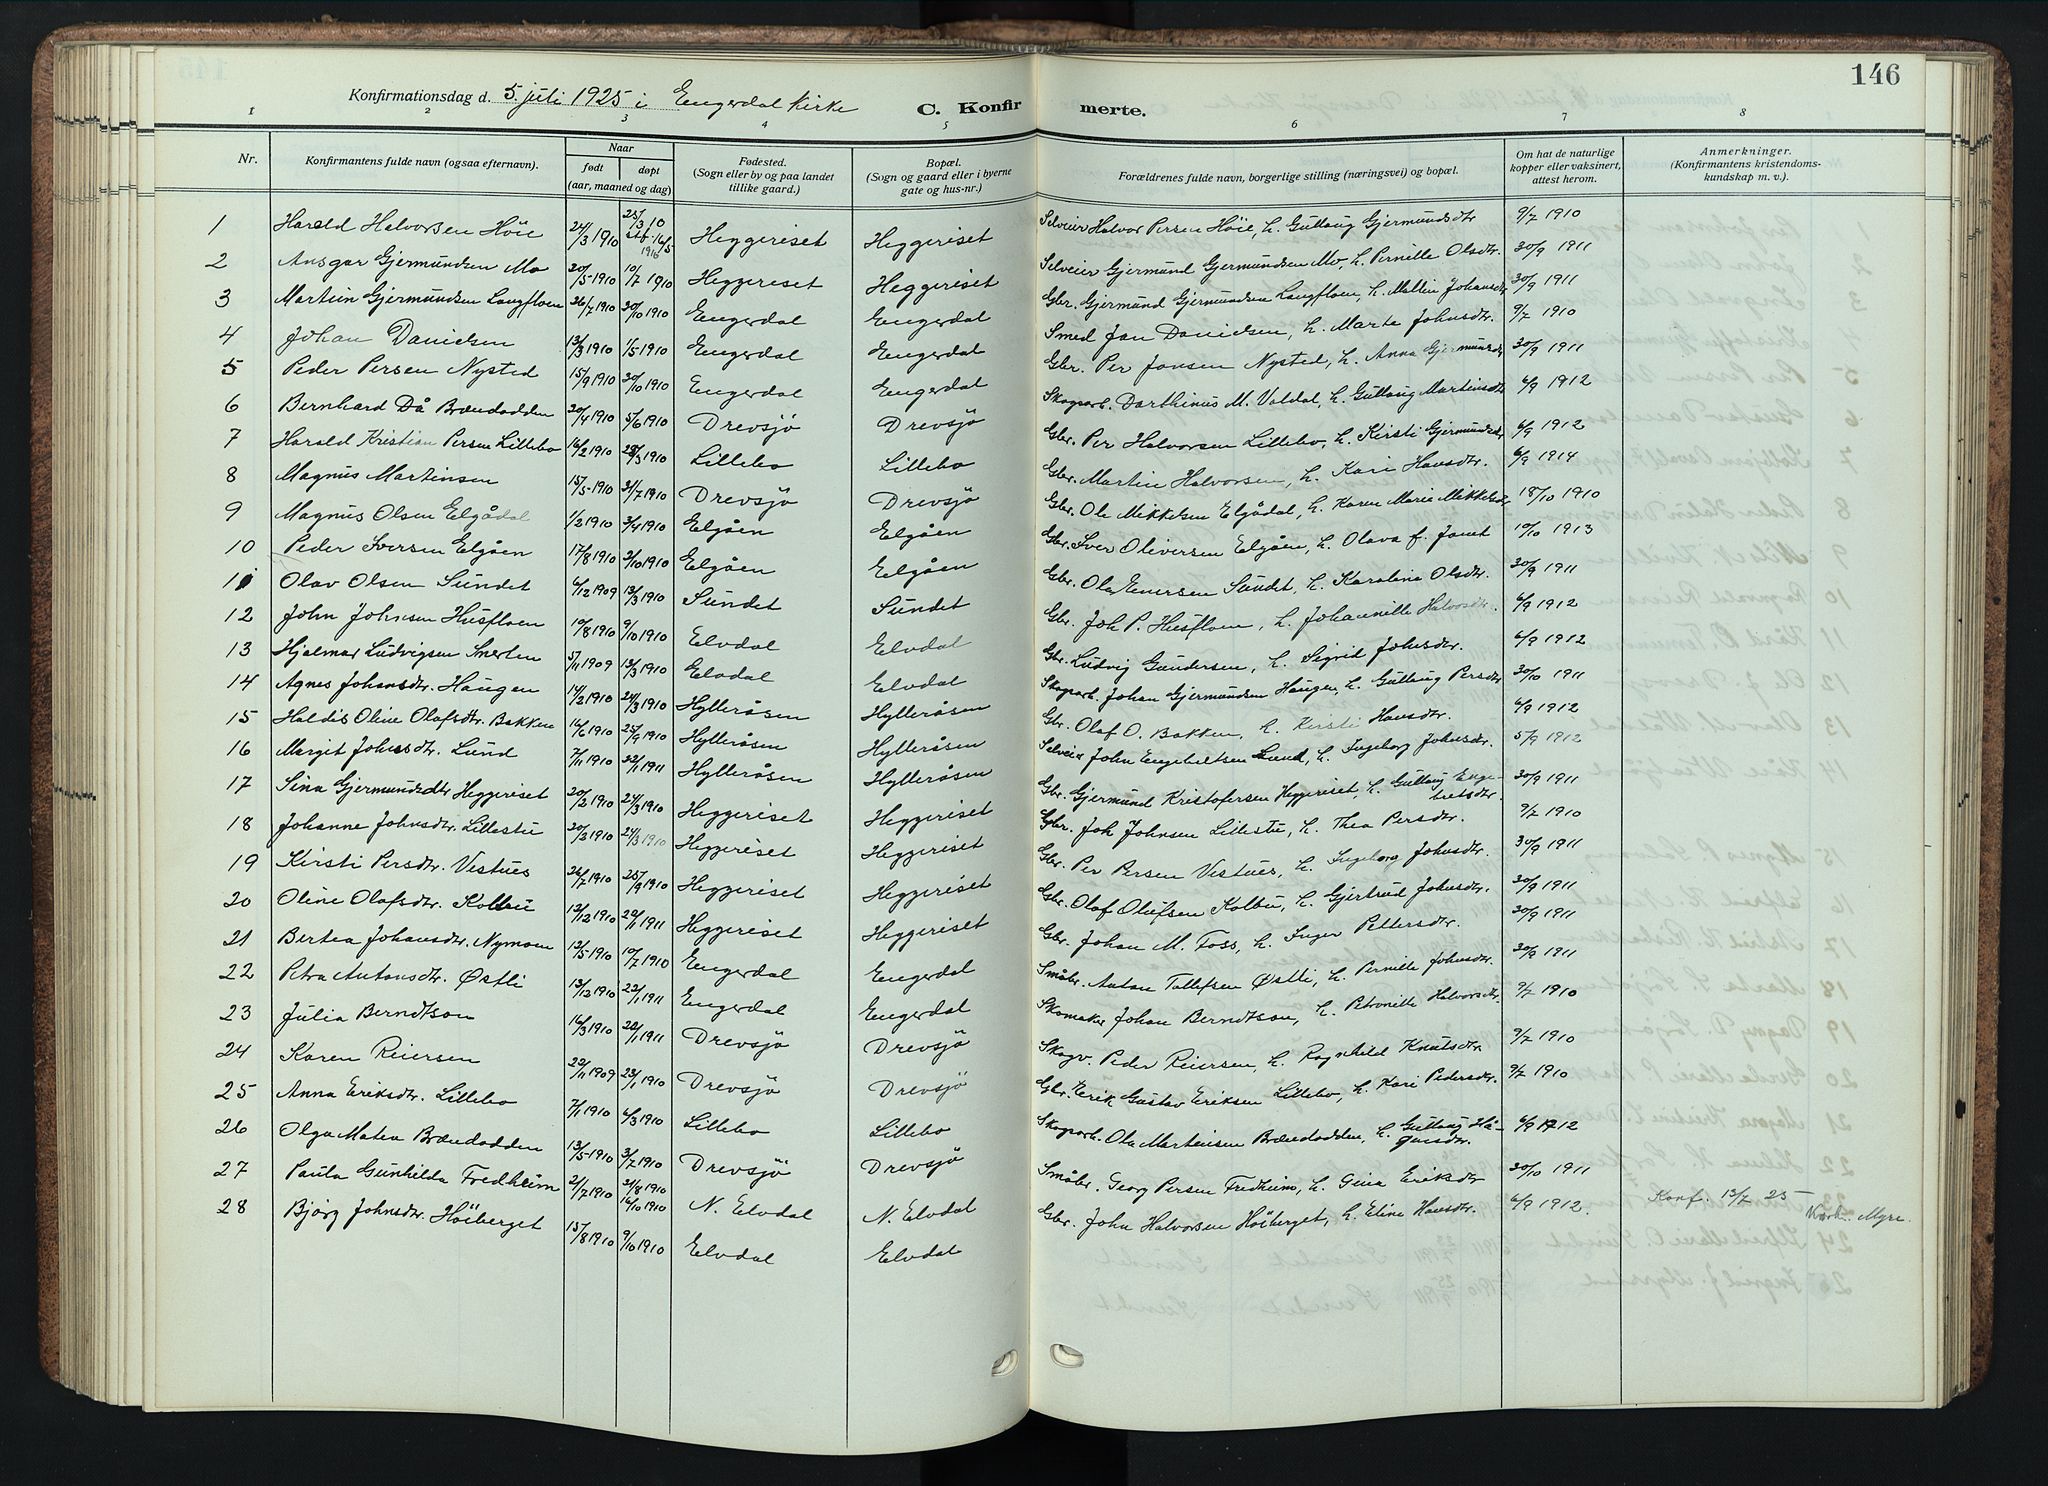 146
Konfirmationsdag d. 5 juli 1925 i Engerdal kirke C. Konfirmerte.
1 2 3 4 5 6 7 8
Nr. Konfirmantens fulde navn (ogsaa efternavn). Naar født døpt (aar, maaned og dag) Fødested. (Sogn eller by og paa landet tillike gaard.) Bopæl. (Sogn og gaard eller i byerne gate og hus-nr.) Forældrenes fulde navn, borgerlige stilling (næringsvei) og bopæl. Om hat de naturlige kopper eller vaksinert, attest herom. Anmerkninger. (Konfirmantens kristendomskundskap m. v.)
1 Harald Halvorsen Höie 24/3 1910 25/3 10 stf. 16/5 1916 Heggeriset Heggeriset Selveier Halvor Persen Höie, h. Gullaug Gjermundsdtr 9/7 1910
2 Ansgar Gjermundsen Mo 20/5 1910 10/7 1910 Heggeriset Heggeriset Selveier Gjermund Gjermundsen Mo, h. Pernille Olsdtr. 30/9 1911
3 Martin Gjermundsen Langfloen 26/7 1910 30/10 1910 Engerdal Engerdal Gbr. Gjermund Gjermundsen Langfloen, h. Mallin Johansdtr 30/9 1911
4 Johan Danielsen 13/3 1910 1/5 1910 Engerdal Engerdal Smed Jon Danielsen, h. Marte Johnsdtr. 9/7 1910
5 Peder Persen Nysted 15/9 1910 30/10 1910 Engerdal Engerdal Gbr. Per Jonsen Nysted, h. Anna Gjermundsdtr 30/9 1911
6 Bernhard Då Brændodden 20/4 1910 5/6 1910 Drevsjö Drevsjö Skogarb. Darthinus M. Valdal, h. Gullaug Martinsdtr 6/9 1912
7 Harald Kristian Persen Lillebo 16/2 1910 28/3 1910 Lillebo Lillebo Gbr. Per Halvorsen Lillebo, h. Kirsti Gjermundsdtr 6/9 1912
8 Magnus Martinsen 15/5 1910 31/7 1910 Drevsjö Drevsjö Gbr. Martin Halvorsen, h. Kari Hansdtr. 6/9 1914
9 Magnus Olsen Elgådal 1/2 1910 3/4 1910 Elgåen Elgåen Gbr. Ole Mikkelsen Elgådal, h. Karen Marie Mikkelsdtr 18/10 1910
10 Peder Iversen Elgåen 17/8 1910 2/10 1910 Elgåen Elgåen Gbr. Iver Oliversen Elgåen, h. Olava f. Jonet 10/10 1913
11 Olav Olsen Sundet 6/12 1909 13/3 1910 Sundet Sundet Gbr. Ola Enersen Sundet, h. Karolina Olsdtr. 30/9 1911
12 John Johnsen Husfloen 10/8 1910 9/10 1910 Elvdal Elvdal Gbr. Joh P. Husfloen, h. Johannille Halvorsdtr. 6/9 1912
13 Hjalmar Ludvigsen Smerten 5/11 1909 13/3 1910 Elvdal Elvdal Gbr. Ludvig Gundersen, h. Sigrid Johnsdtr. 6/9 1912
14 Agnes Johansdtr. Haugen 14/2 1910 24/3 1910 Hylleråsen Hylleråsen Skogarb. Johan Gjermundsen Haugen, h. Gullaug Persdtr 30/10 1911
15 Haldis Oline Olafsdtr. Bakken 16/6 1910 25/9 1910 Hylleråsen Hylleråsen Gbr. Olaf O. Bakken, h. Kirsti Hansdtr. 6/9 1912
16 Margit Johnsdtr. Lund 7/11 1910 22/1 1911 Hylleråsen Hylleråsen Selveier John Engebretsen Lund, h. Ingeborg Johnsdtr. 5/9 1912
17 Sina Gjermundsdtr Heggeriset 20/2 1910 24/3 1910 Heggeriset Heggeriset Gbr. Gjermund Kristofersen Heggeriset, h. Gullaug Engebretsdtr. 30/9 1911
18 Johanne Johnsdtr. Lillestu 20/3 1910 24/3 1910 Heggeriset Heggeriset Gbr. Joh Johnsen Lillestu, h. Thea Persdtr. 9/7 1910
19 Kirsti Persdtr. Vestues 26/7 1910 25/9 1910 Heggeriset Heggeriset Gbr. Per Persen Vestues, h. Ingeborg Johnsdtr. 30/9 1911
20 Oline Olafsdtr. Kolbu 12/12 1910 22/1 1911 Heggeriset Heggeriset Gbr. Olaf Olufsen Kolbu, h. Gjertrud Johnsdtr. 30/9 1911
21 Bertea Johansdtr. Nymoen 12/5 1910 10/7 1910 Engerdal Engerdal Gbr. Johan M. Foss, h. Inger Pettersdtr. 30/9 1911
22 Petra Antonsdtr. Østli 13/12 1910 22/1 1911 Engerdal Engerdal Småbr. Anton Tollefsen Østli, h. Pernille Johnsdtr. 30/9 1911
23 Julia Berndtson 16/3 1910 22/1 1911 Drevsjö Drevsjö Skomaker Johan Berndtson, h. Petronille Halvorsdtr. 9/7 1910
24 Karen Reiersen 22/11 1909 23/1 1910 Drevsjö Drevsjö Skogv. Peder Reiersen, h. Ragnhild Knutsdtr 9/7 1910
25 Anna Eriksdtr. Lillebo 7/1 1910 6/3 1910 Lillebo Lillebo Gbr. Erik Gustav Eriksen Lillebo, h. Kari Pedersdtr. 9/7 1910
26 Olga Matea Brændodden 13/5 1910 3/7 1910 Drevsjö Drevsjö Skogarb. Ola Martinsen Brændodden, h. Gullaug Hågensdtr. 6/9 1912
27 Paula Gunhilda Fredheim 21/7 1910 21/8 1910 16/10 1910 N. Elvdal N. Elvdal Småbr. Georg Persen Fredheim, h. Gina Eriksdtr 30/10 1911
28 Bjørg Johnsdtr. Höiberget 15/8 1910 9/10 1910 Elvdal Elvdal Gbr. John Halvorsen Höiberget, h. Eline Hansdtr. 6/9 1912. Konf. 13/7 25 Myre.